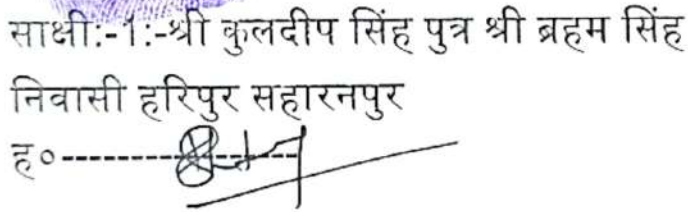 साक्षी:-1:-श्री कुलदीप सिंह पुत्र श्री ब्रहम सिंह
निवासी हरिपुर सहारनपुर
ह०--------------------